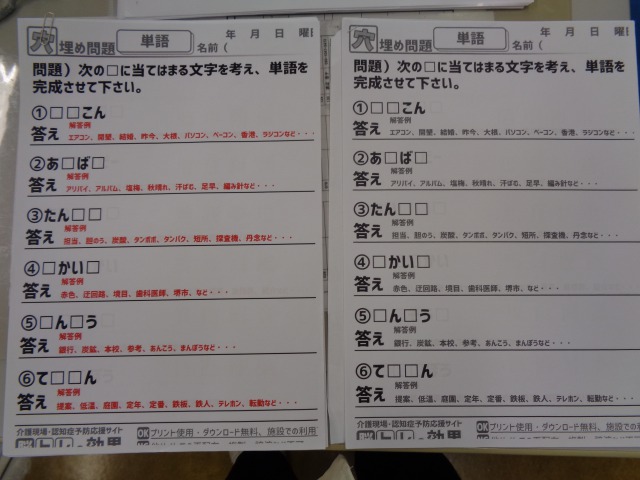 穴埋め問題 単語 年 月 日 曜日
名前（
問題）次の□に当てはまる文字を考え、単語を
完成させて下さい。
①□□こん
解答例
答え エアコン、開墾、結婚、昨今、大根、パソコン、ベーコン、香港、ラジコンなど・・・
②あ□ば□
解答例
答え アリバイ、アルバム、塩梅、秋晴れ、汗ばむ、足早、編み針など・・・
③たん□□
解答例
答え 担当、胆のう、炭酸、タンポポ、タンパク、短所、探査機、丹念など・・・
④□かい□
解答例
答え 赤色、迂回路、境目、歯科医師、堺市、など・・・
⑤□ん□う
解答例
答え 銀行、炭鉱、本校、参考、あんこう、まんぼうなど・・・
⑥て□□ん
解答例
答え 提案、低温、庭園、定年、定番、鉄板、鉄人、テレホン、転勤など・・・
介護現場・認知症予防応援サイト
OKプリント使用・ダウンロード無料、施設での利用
穴埋め問題 単語 年 月 日 曜日
名前（
問題）次の□に当てはまる文字を考え、単語を
完成させて下さい。
①□□こん
解答例
答え エアコン、開墾、結婚、昨今、大根、パソコン、ベーコン、香港、ラジコンなど・・・
②あ□ば□
解答例
答え アリバイ、アルバム、塩梅、秋晴れ、汗ばむ、足早、編み針など・・・
③たん□□
解答例
答え 担当、胆のう、炭酸、タンポポ、タンパク、短所、探査機、丹念など・・・
④□かい□
解答例
答え 赤色、迂回路、境目、歯科医師、堺市、など・・・
⑤□ん□う
解答例
答え 銀行、炭鉱、本校、参考、あんこう、まんぼうなど・・・
⑥て□□ん
解答例
答え 提案、低温、庭園、定年、定番、鉄板、鉄人、テレホン、転勤など・・・
介護現場・認知症予防応援サイト
OKプリント使用・ダウンロード無料、施設での利用